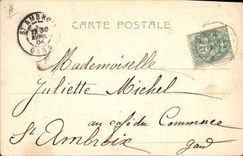 CARTE POSTALE
St AMBROIX
GARD
Mademoiselle
Juliette Michel
au café du Commerce
St Ambroix
Gard